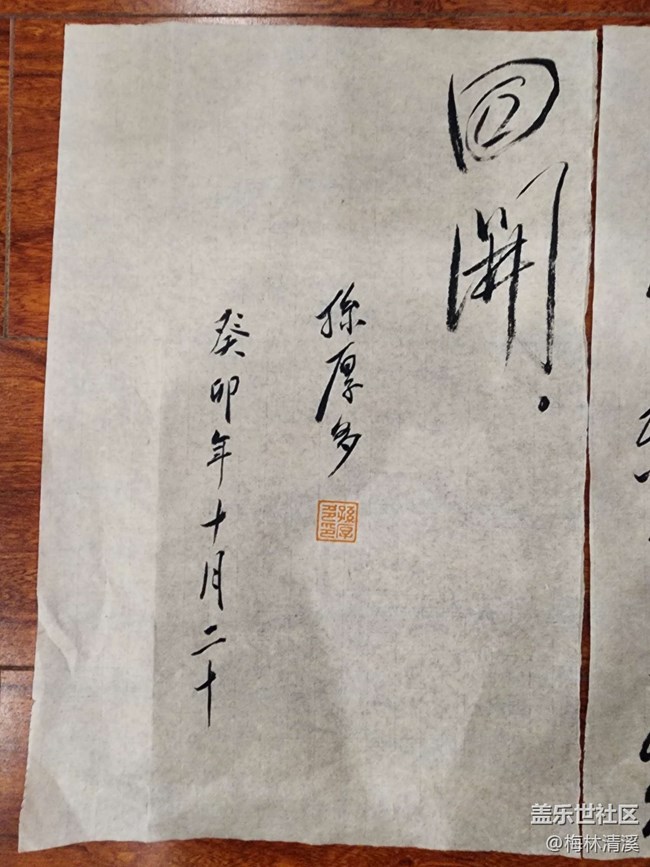 回開
孫厚多
孫厚多印
癸卯年十月二十
盖乐世社区
@梅林清溪